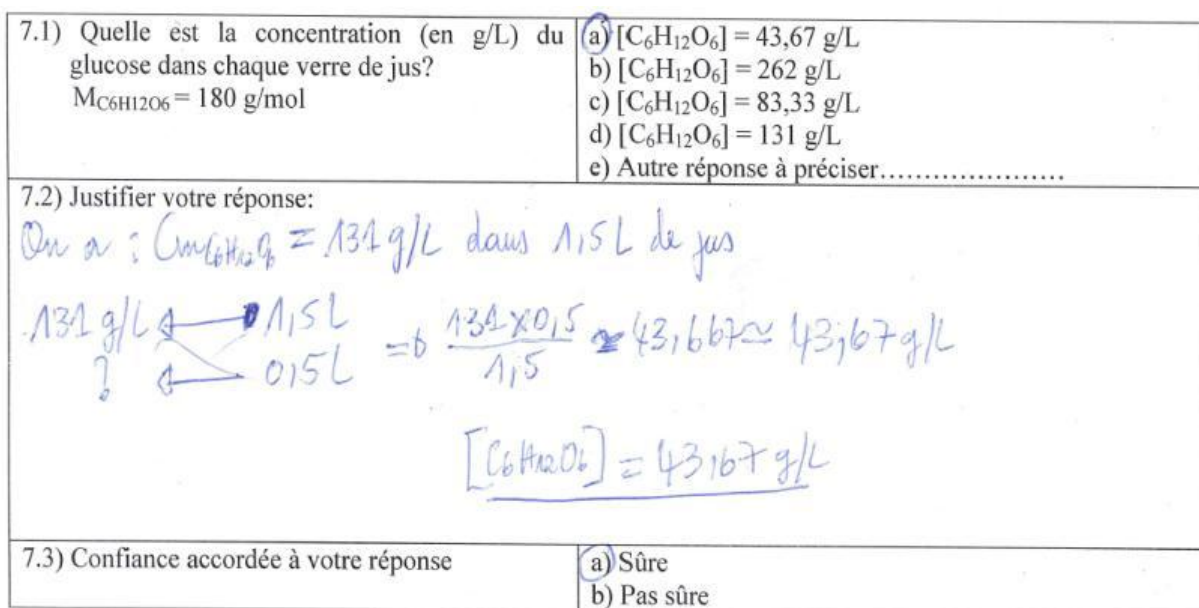 7.1) Quelle est la concentration (en g/L) du
glucose dans chaque verre de jus?
MC6H12O6 = 180 g/mol
a) [C₆H₁₂O₆] = 43,67 g/L
b) [C₆H₁₂O₆] = 262 g/L
c) [C₆H₁₂O₆] = 83,33 g/L
d) [C₆H₁₂O₆] = 131 g/L
e) Autre réponse à préciser.....................
7.2) Justifier votre réponse:
On a : Cm C6H12O6 = 131 g/L dans 1,5L de jus
131 g/L 1,5L
? 0,5L
=> 131x0,5 / 1,5 ≈ 43,667 ≃ 43,67 g/L
[C6H12O6] = 43,67 g/L
7.3) Confiance accordée à votre réponse
a) Sûre
b) Pas sûre